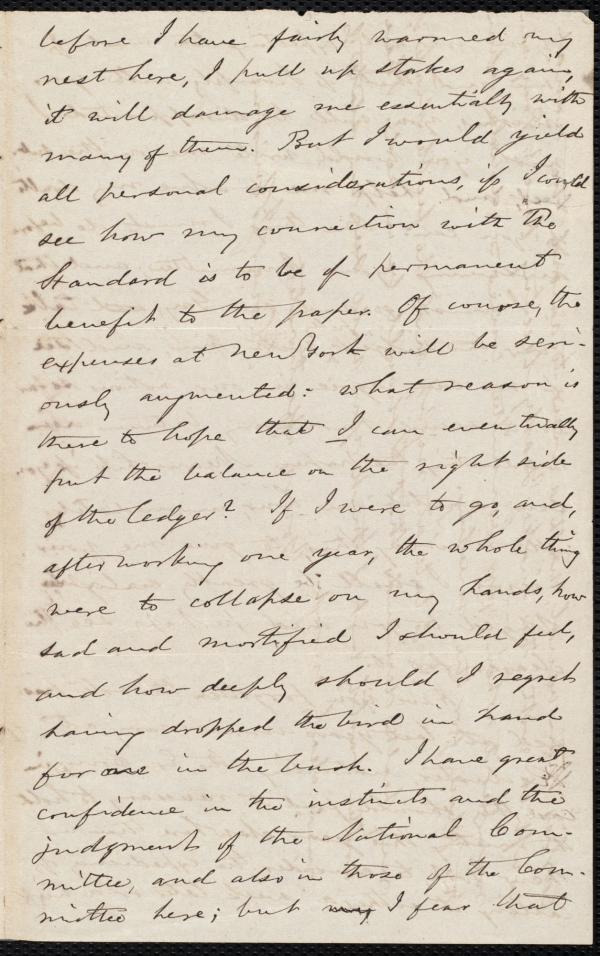 before I have fairly warmed my
nest here, I pull up stakes again,
it will damage me essentially with
many of them. But I would yield
all personal considerations, if I could
see how my connection with the
Standard is to be of permanent
benefit to the paper. Of course, the
expenses at New York will be seri-
ously augmented: what reason is
there to hope that I can eventually
put the balance on the right side
of the ledger? If I were to go, and,
after working one year, the whole thing
were to collapse on my hands, how
sad and mortified I should feel,
and how deeply should I regret
having dropped the bird in hand
for one in the bush. I have great
confidence in the instincts and the
judgment of the National Com-
mittee, and also in those of the Com-
mittee here; but my I fear that